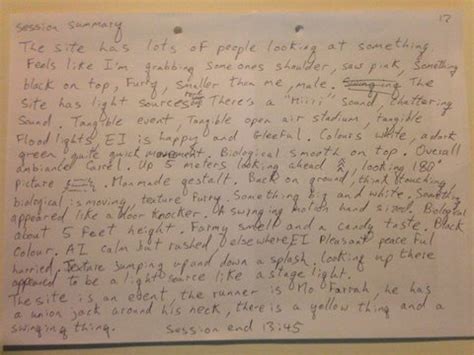 session summary
12
The site has lots of people looking at something
Feels like I'm grabbing someones shoulder, saw pink, something
black on top, Furry, smaller than me, male. The
site has light sources. There's a "Miiri" sound, chattering
sound. Tangible event, Tangible open air stadium, tangible
Floodlights, EI is happy and Gleeful. Colours white, a dark
green, quite quick movement. Biological smooth on top. Overall
ambiance Carrel. Up 5 meters looking ahead, looking 180°
picture. Manmade gestalt. Back on ground, think touching
biological is moving, texture Furry. Something big and white. Something
appeared like a door knocker. A swinging motion hand sized. Biological
about 5 feet height. Farmy smell and a candy taste. Black
Colour. AI calm but rashed elsewhere EI Pleasant peaceful
harried. Texture Jumping up and down a splash, looking up there
appeared to be a light source like a stage light.
The site is an event, the runner is Mo Farrah, he has
a union jack around his neck, there is a yellow thing and a
swinging thing.
session end 13:45